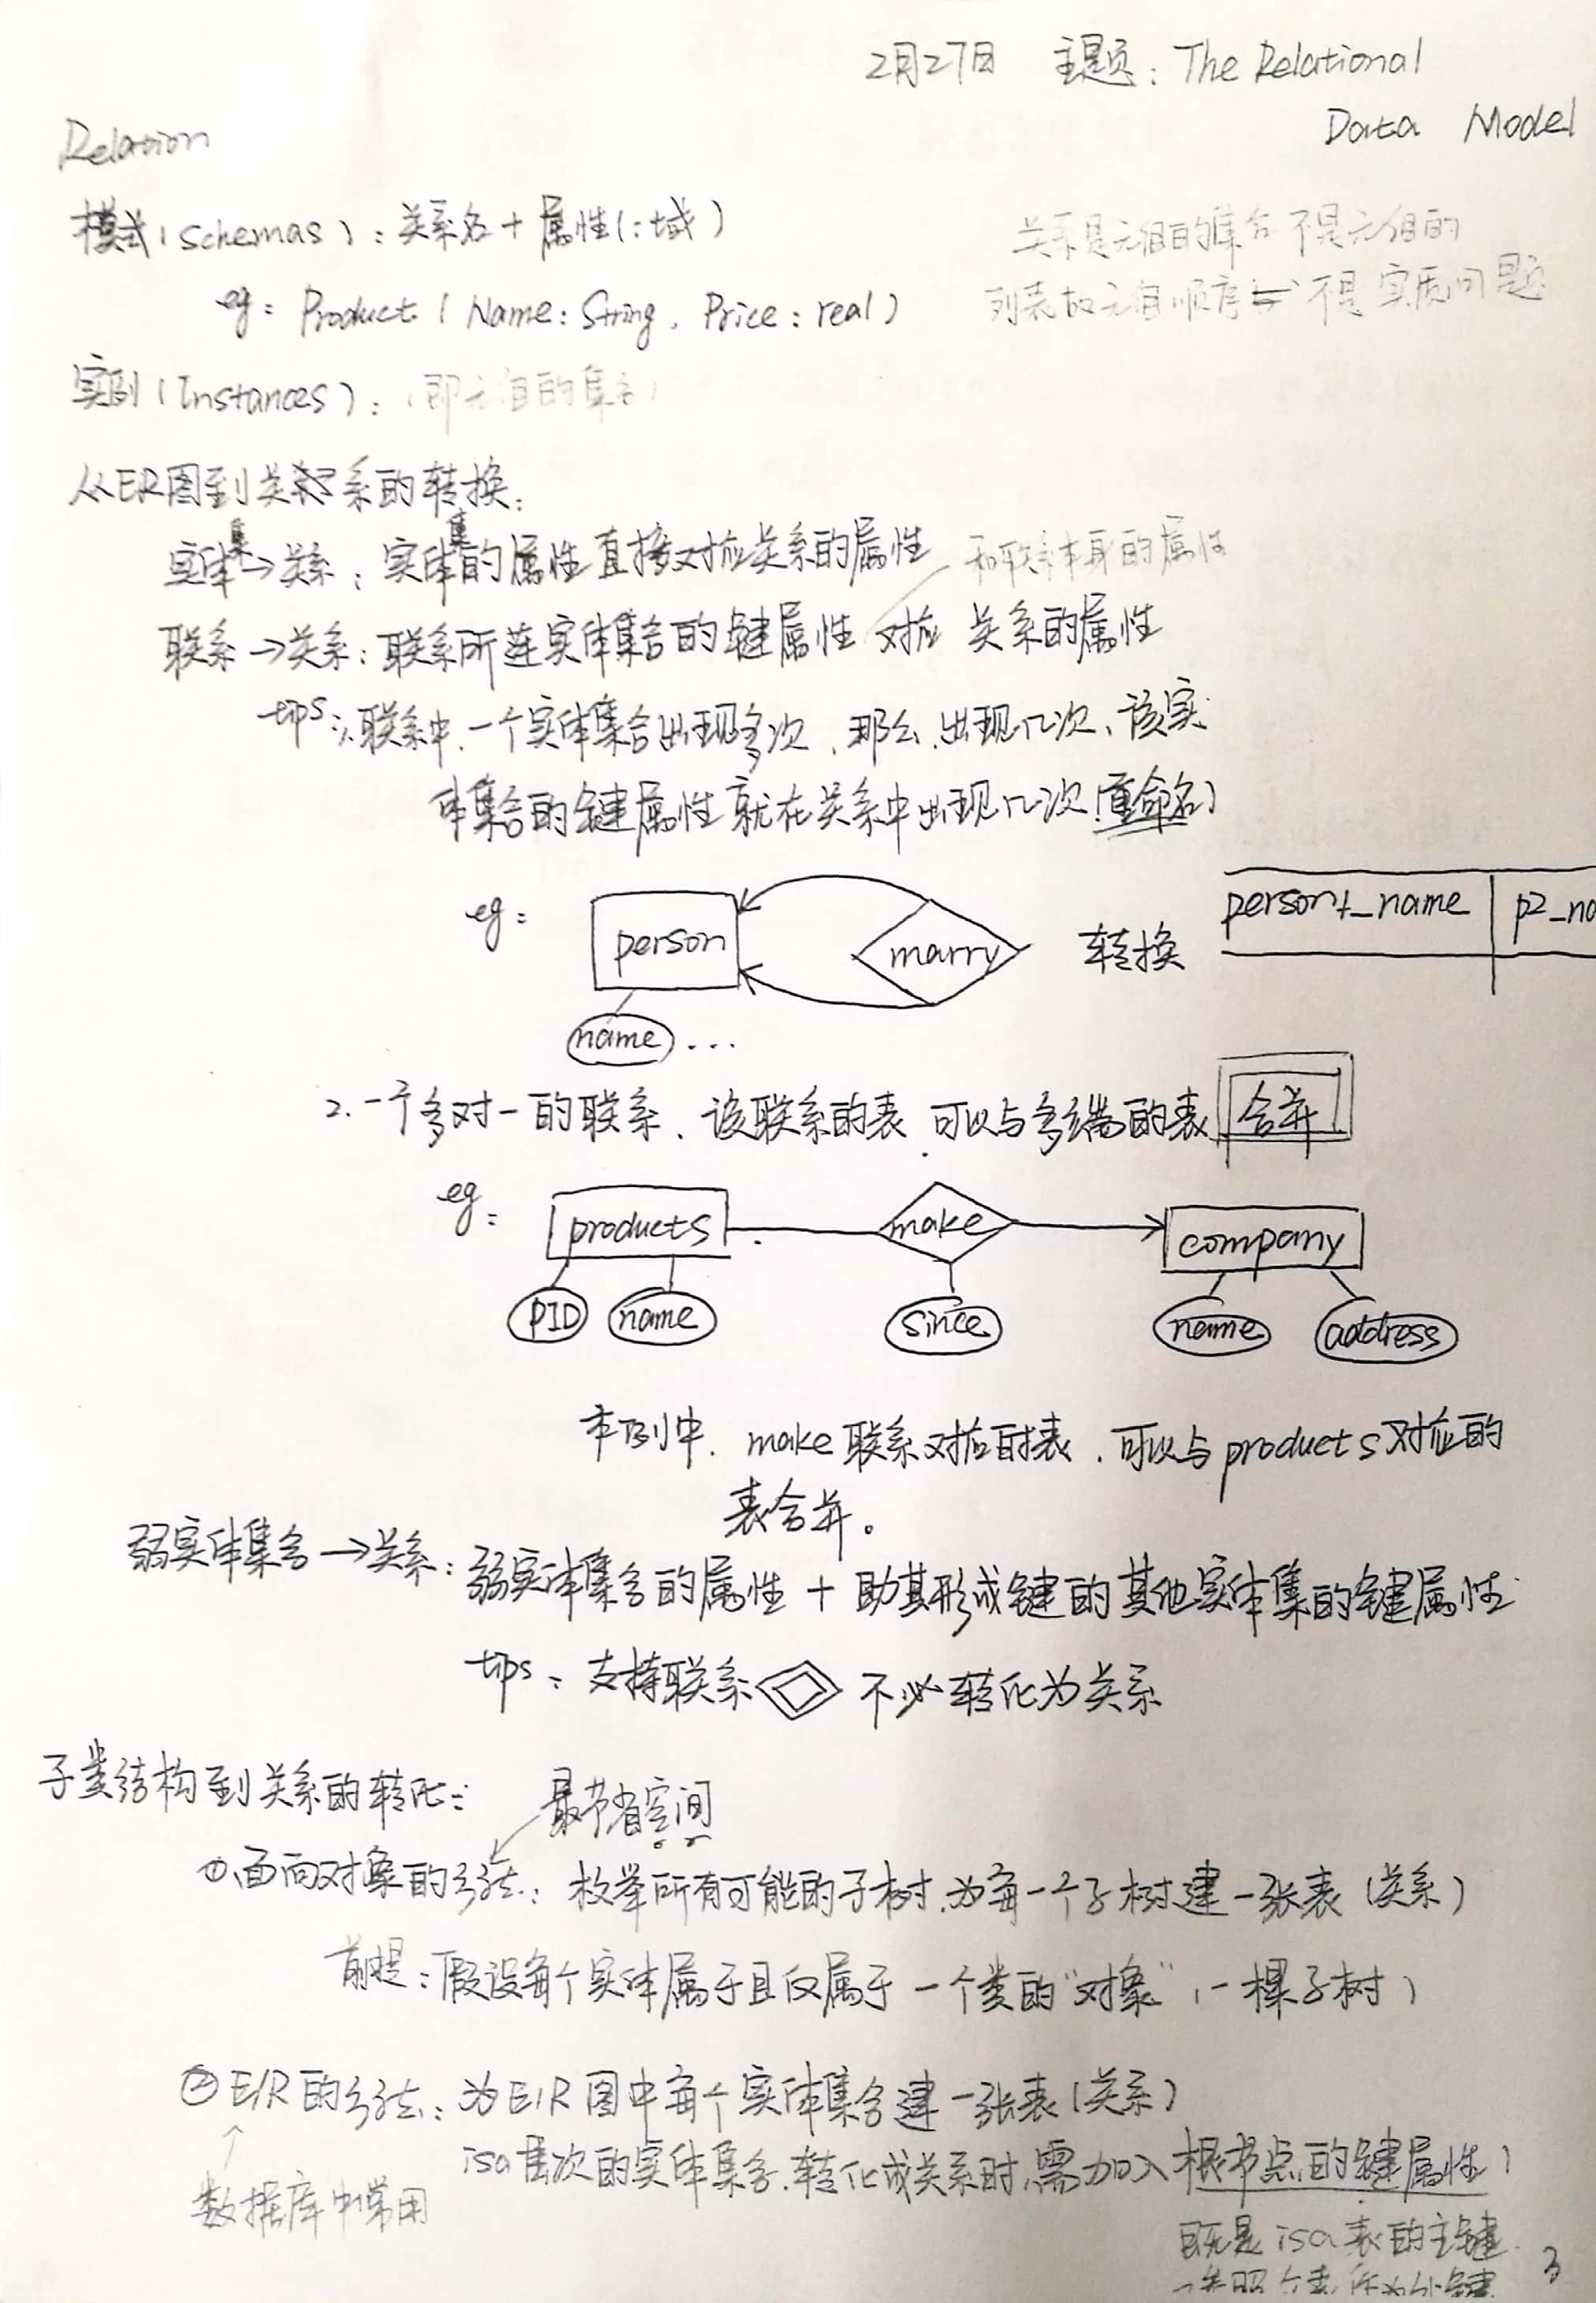 2月27日 主题：The Relational
Data Model
Relation
模式(schemas)：关系名+属性(:域)
关系是元组的集合不是元组的
列表故元组顺序 不是实质问题
eg：Product (Name:String, Price:real)
实例(Instances)：(即元组的集合)
从ER图到关系的转换：
实体集→关系：实体集的属性直接对应关系的属性
和联系本身的属性
联系→关系：联系所连实体集合的键属性 对应 关系的属性
tips：1.联系中，一个实体集合出现多次，那么，出现几次，该实
体集合的键属性就在关系中出现几次(重命名)
eg：
person
marry
转换
person1_name
p2_na
name
...
2.一个多对一的联系，该联系的表，可以与多端的表 合并
eg：
products
make
company
PID
name
since
name
address
本例中，make联系对应的表，可以与products对应的
表合并。
弱实体集合→关系：弱实体集合的属性+助其形成键的其他实体集的键属性
tips：支持联系 不必转化为关系
子类结构到关系的转化：
最节省空间
①.面向对象的方法：枚举所有可能的子树，为每一个子树建一张表(关系)
前提：假设每个实体属于且仅属于一个类的“对象”(一棵子树)
②E/R的方法：为E/R图中每个实体集合建一张表(关系)
isa层次的实体集合，转化成关系时，需加入根节点的键属性
数据库中常用
既是isa表的主键
3